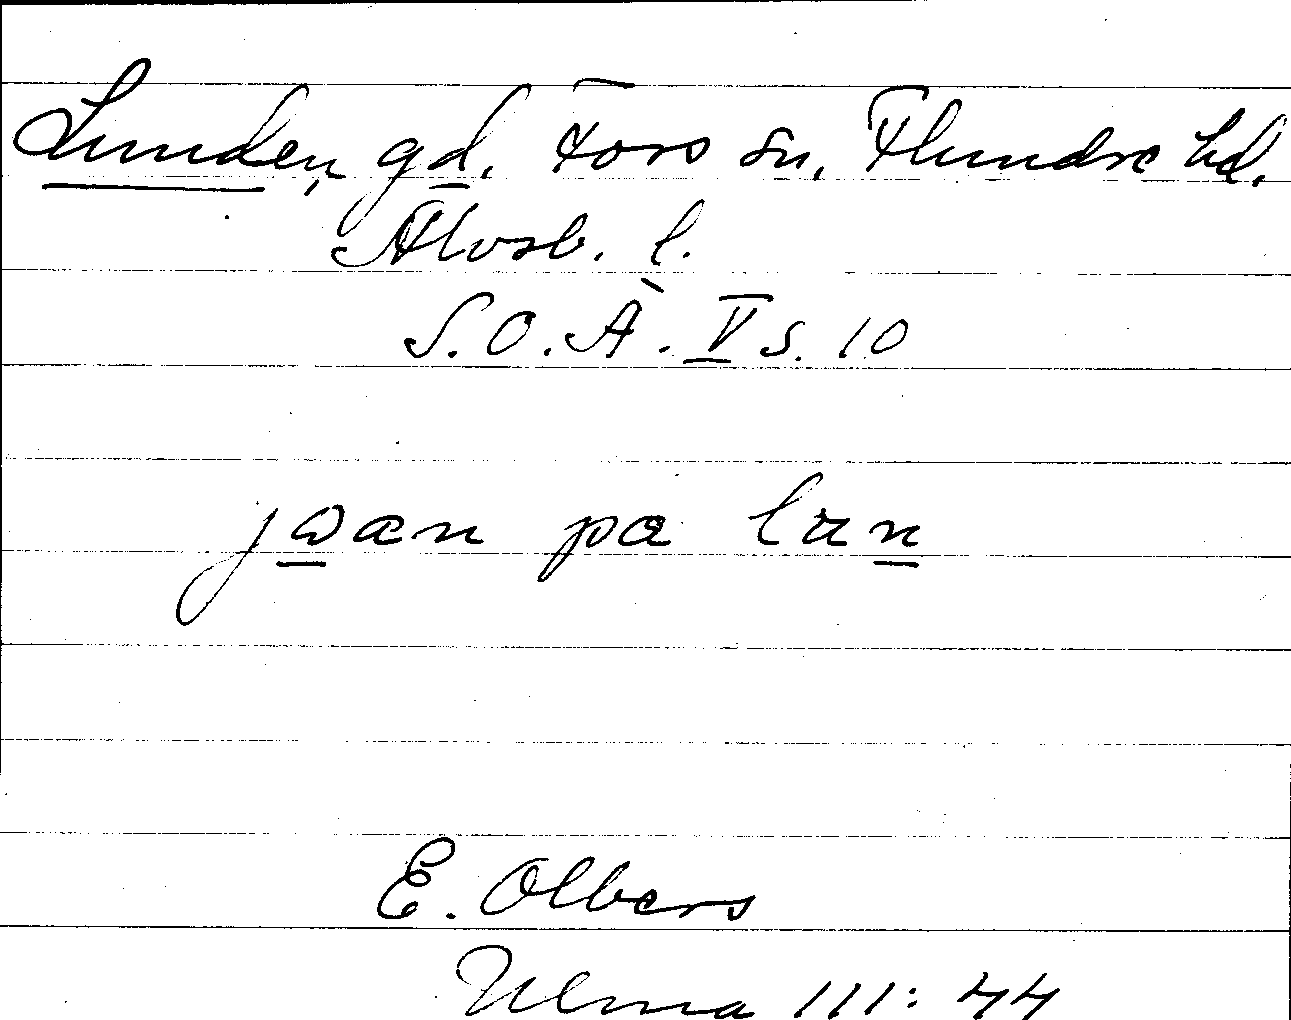 Lunden, gd. Fors sn. Flundre hd.
Älvsb. l.
S.O.Ä. V s. 10
pa
E. Olbers
Ulma 111: 44